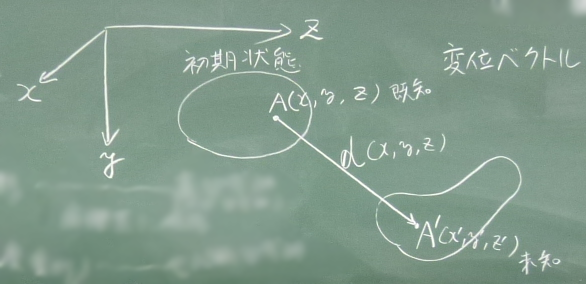 z
初期状態
変位ベクトル
x
A(x, y, z) 既知。
y
d(x, y, z)
A'(x', y', z')
未知。